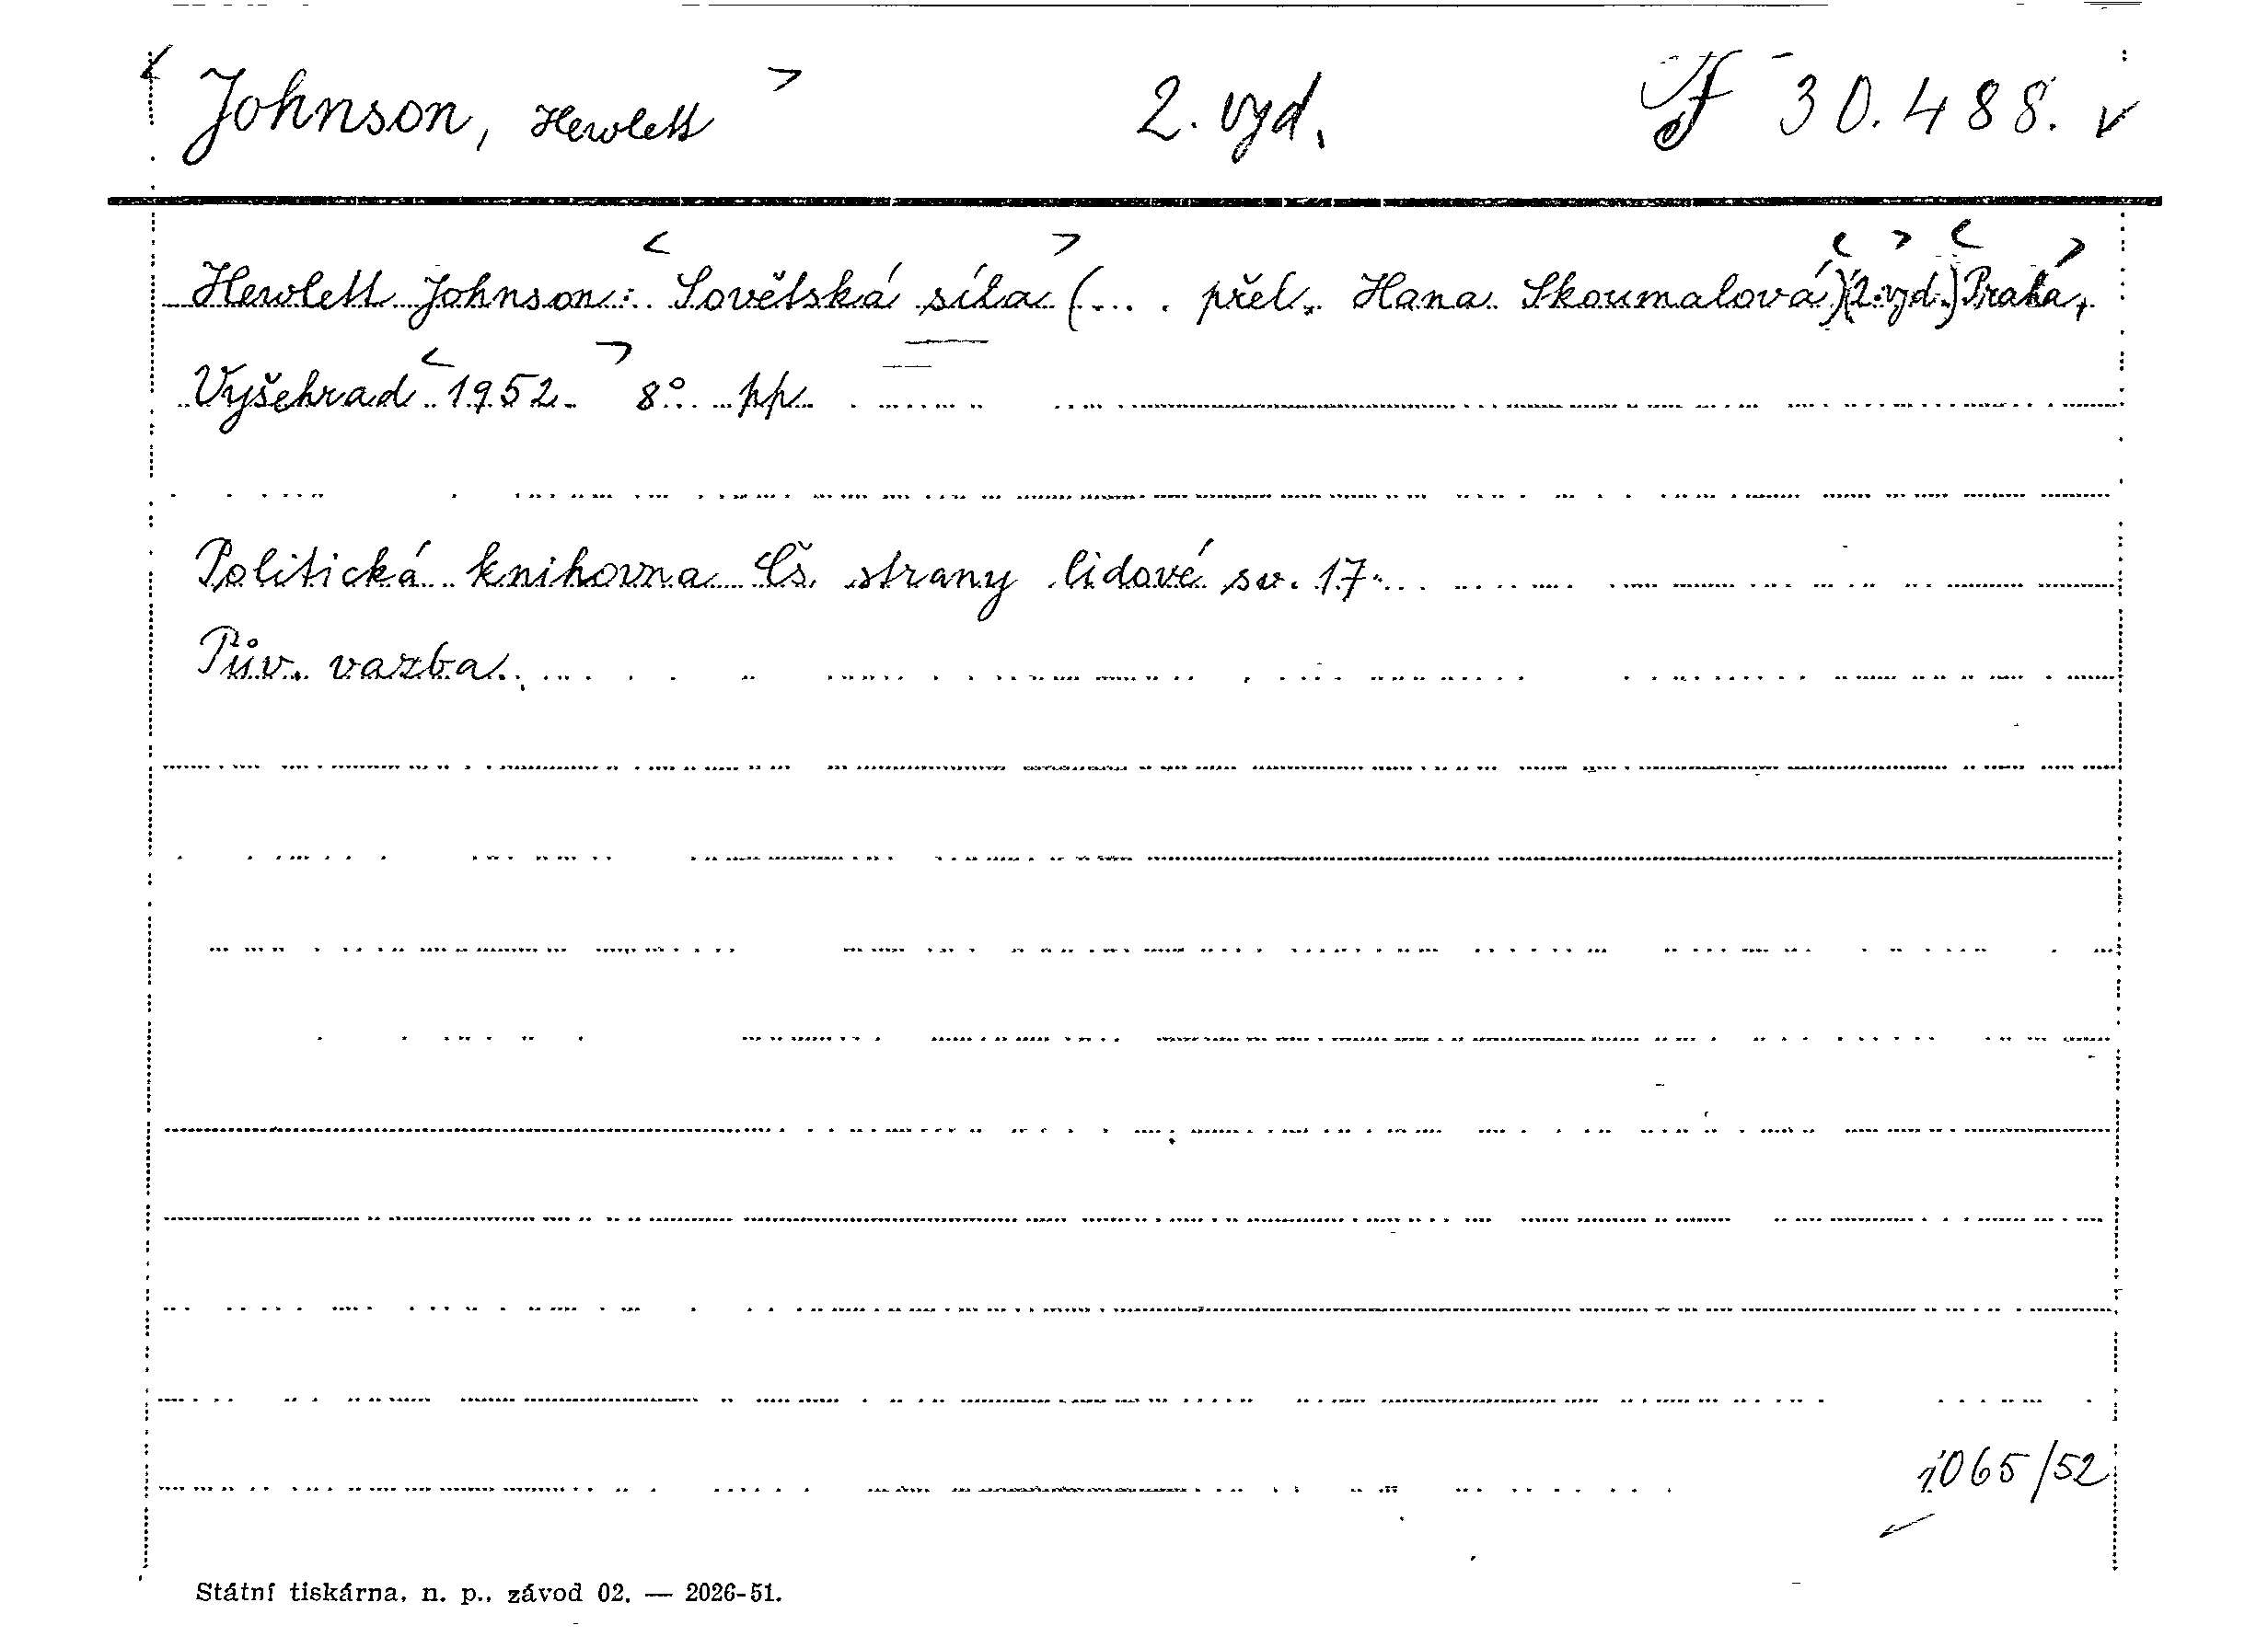 Johnson, Hewlett 2. vyd. F 30.488.
Hewlett Johnson: Sovětská síla (... . přel. Hana Skoumalová)(2.vyd.) Praha,
Vyšehrad 1952. 8° pp.
Politická knihovna Čs. strany lidové sv. 17.
Pův. vazba.
1065/52
Státní tiskárna, n. p., závod 02. — 2026-51.